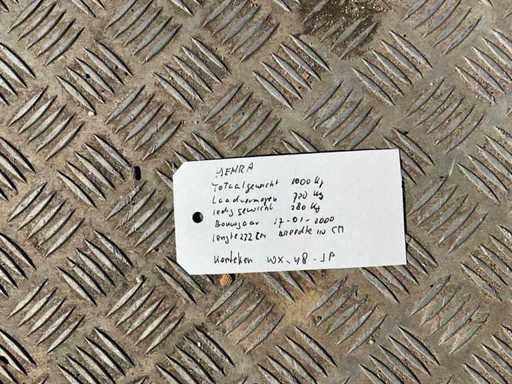 HENRA
Totaalgewicht 1000 kg
Laadvermogen 720 kg
ledig gewicht 280 kg
Bouwjaar 17-01-2000
lengte 272 breedte in CM
Kenteken WX-48-JP